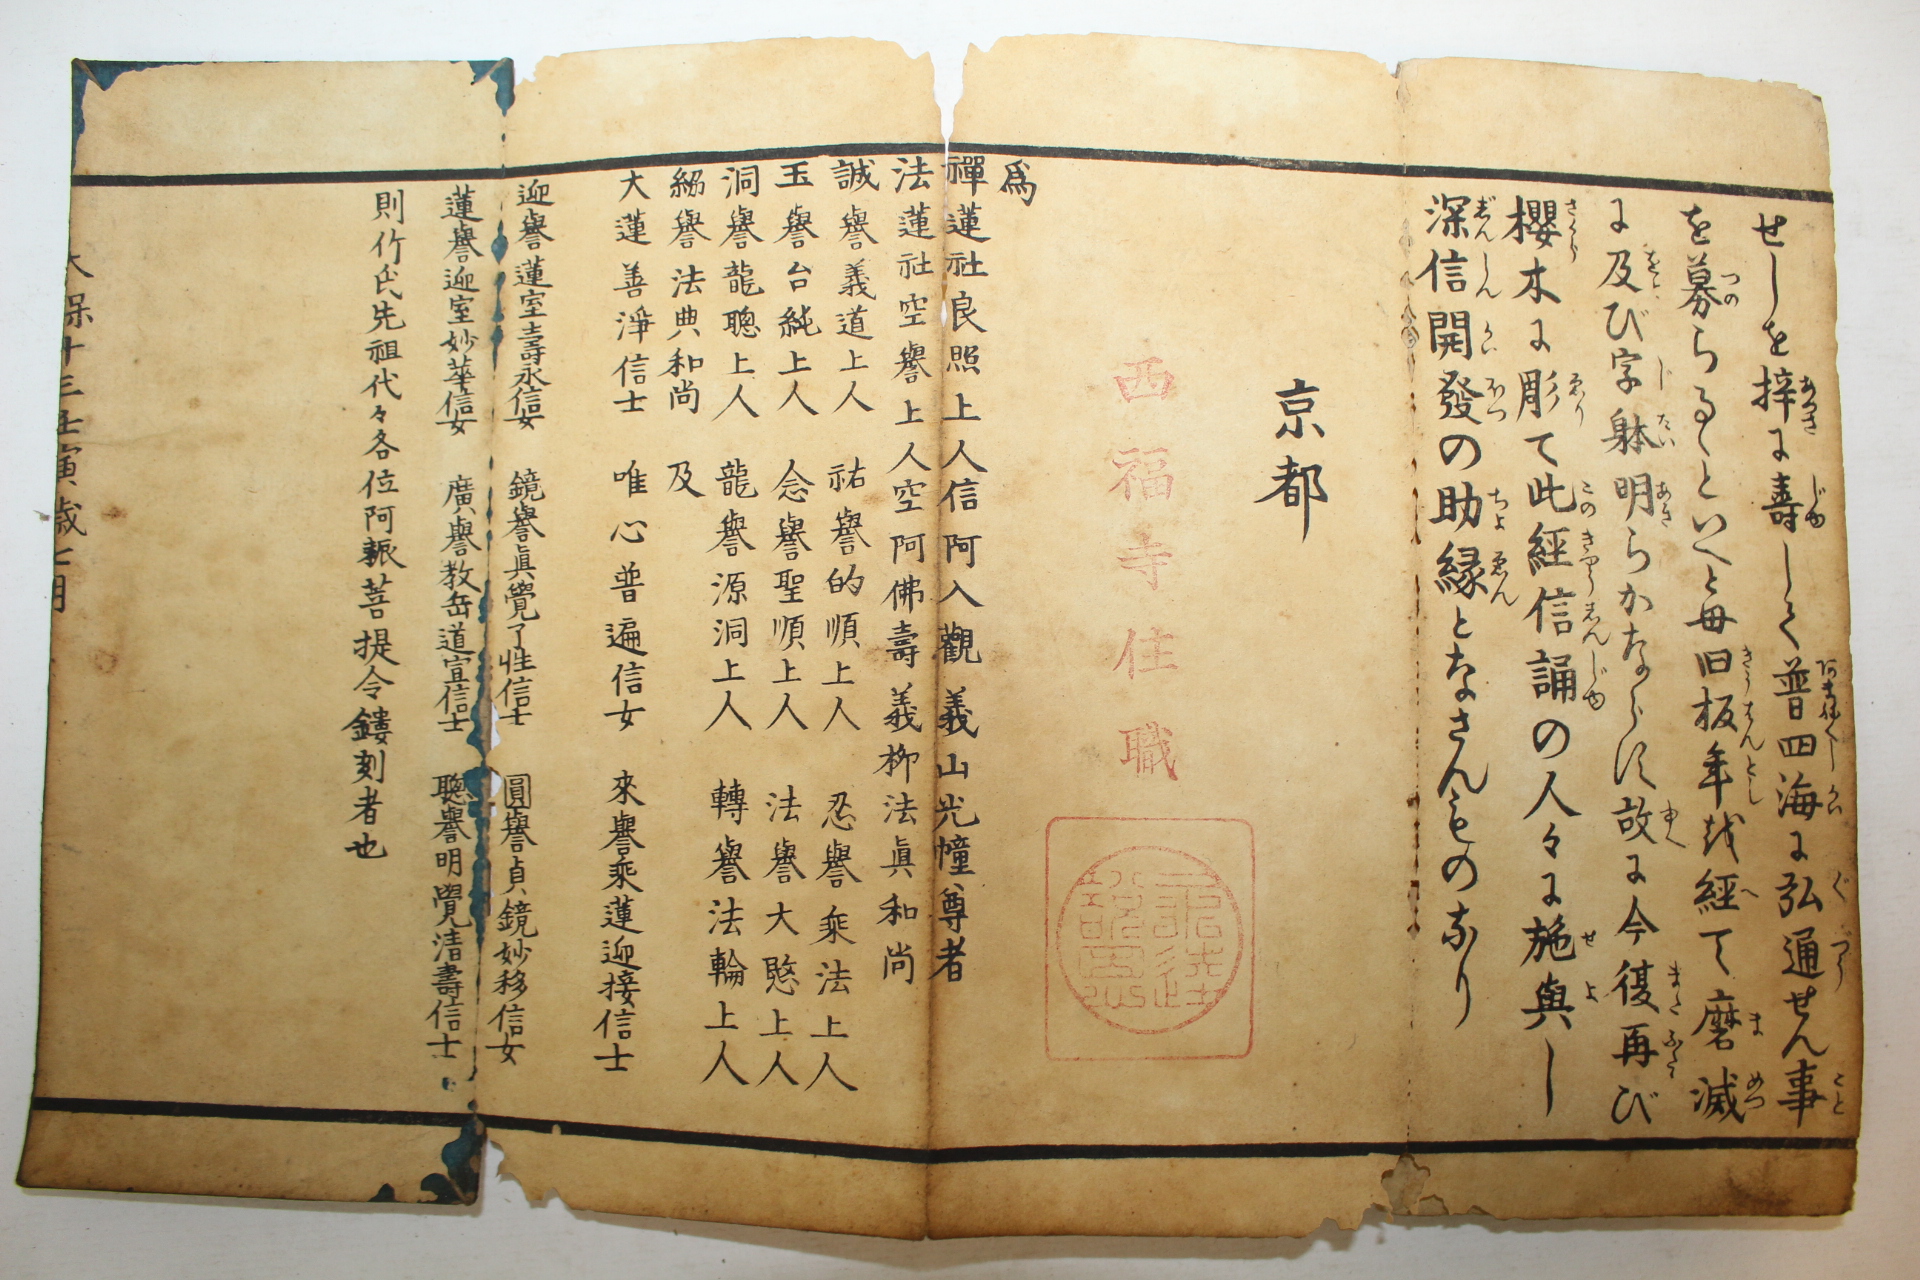 せしを梓に壽しく普四海に弘通せん事
を募らるゝといへと毋旧板年越經て磨滅
に及び字躰明らかならに故に今復再び
櫻木に彫て此經信誦の人々に施與し
深信開發の助縁となさんものあり
京都
西福寺住職
爲
禪蓮社良照上人信阿入觀義山光幢尊者
法蓮社空譽上人空阿佛壽義柳法眞和尚
誠譽義道上人 祐譽的順上人 忍譽乘法上人
玉譽台純上人 念譽聖順上人 法譽大愍上人
洞譽龍聰上人 龍譽源洞上人 轉譽法輪上人
紉譽法典和尚 及
大蓮善淨信士 唯心普遍信女 來譽乘蓮迎接信士
迎譽蓮室壽永信女 鏡譽眞覺了性信士 圓譽貞鏡妙移信女
蓮譽迎室妙華信女 廣譽教岳道宣信士 聰譽明覺清壽信士
則竹氏先祖代々各位阿耨菩提令鏤刻者也
保十三壬寅歳七月